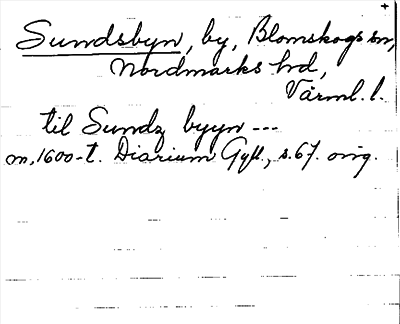 +
Sundsbyn, by, Blomskogs sn,
Nordmarks hd,
Värml. l.
til Sundz byyn ---
m. 1600-t. Diarium Gyll., s. 67. orig.